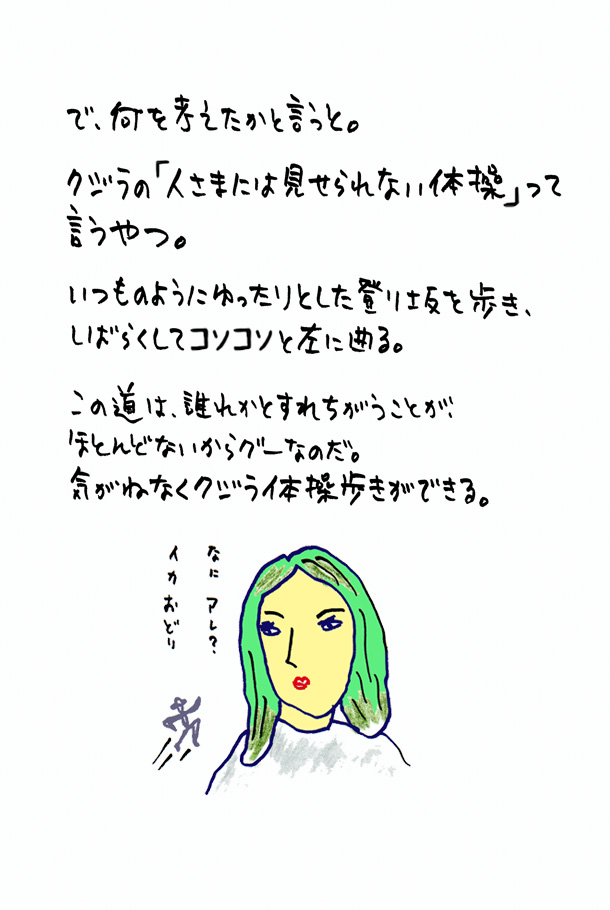 で、何を考えたかと言うと。
クジラの「人さまには見せられない体操」って
言うやつ。
いつものようにゆったりとした登り坂を歩き、
しばらくしてコソコソと左に曲る。
この道は、誰れかとすれちがうことが、
ほとんどないからグーなのだ。
気がねなくクジラ体操歩きができる。
なに アレ?
イカ おどり